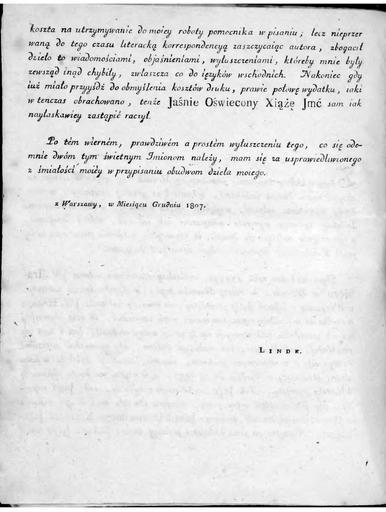 koszta na utrzymywanie do moiey roboty pomocnika w pisaniu; lecz nieprzer
waną do tego czasu literacką korrespondencyą zaszczycaiąc autora, zbogacił
dzieło to wiadomościami, obiaśnieniami, wyłuszczeniami, któreby mnie były
zewsząd inąd chybiły, zwłaszcza co do ięzyków wschodnich. Nakoniec gdy
iuż miało przyyśdź do obmyślenia kosztów druku, prawie połowę wydatku, iaki
w tenczas obrachowano, tenże Jaśnie Oświecony Xiążę Jmć sam iak
nayłaskawiey zastąpić raczył.
Po tém wierném, prawdziwém a prostém wyłuszczeniu tego, co się ode-
mnie dwóm tym świetnym Imionom należy, mam się za usprawiedliwionego
z śmiałości moiéy w przypisaniu obudwom dzieła moiego.
z Warszawy, w Miesiącu Grudniu 1807.
LINDE.